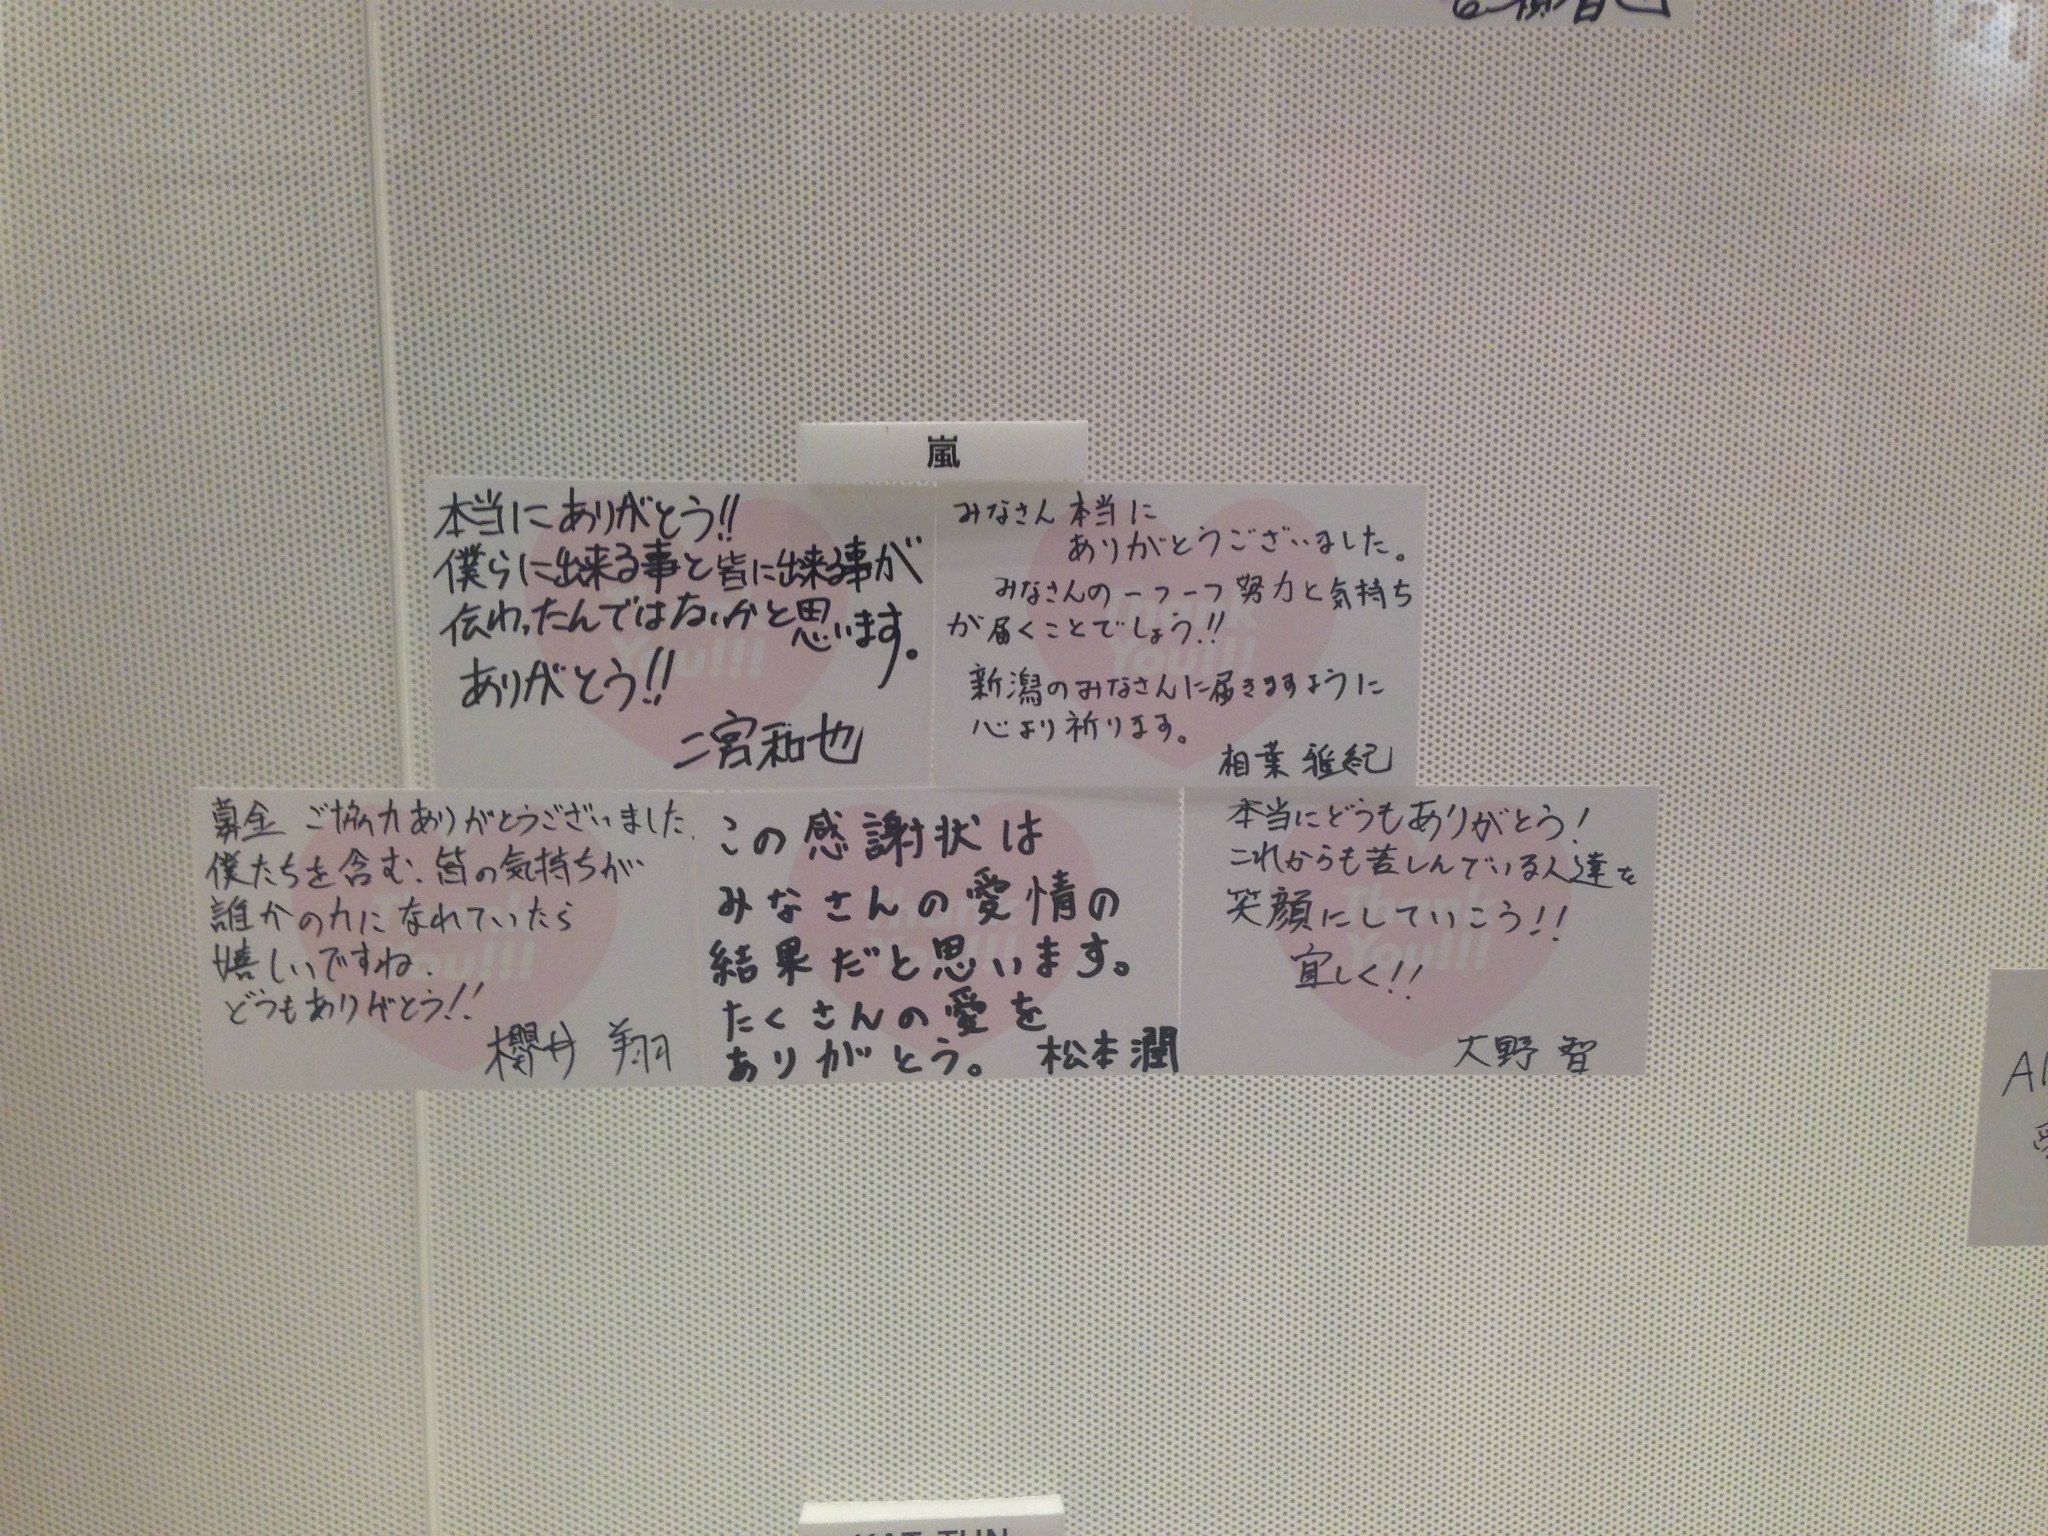 嵐
本当にありがとう!!
僕らに出来る事と皆に出来る事が
伝わったんではないかと思います。
ありがとう!!
二宮和也
みなさん本当に
ありがとうございました。
みなさんの一つ一つ努力と気持ち
が届くことでしょう!!
新潟のみなさんに届きますように
心より祈ります。
相葉雅紀
募金 ご協力ありがとうございました.
僕たちを含む、皆の気持ちが
誰かの力になれていたら
嬉しいですね.
どうもありがとう!!
櫻井 翔
この感謝状は
みなさんの愛情の
結果だと思います。
たくさんの愛を
ありがとう。 松本潤
本当にどうもありがとう!
これからも苦しんでいる人達を
笑顔にしていこう!!
宜しく!!
大野 智
Thank You!!!
KAT-TUN